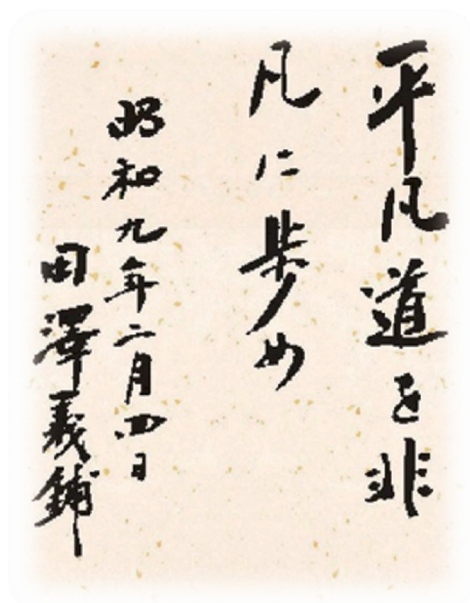 平凡道を非
凡に歩め
昭和九年二月四日
田澤義鋪